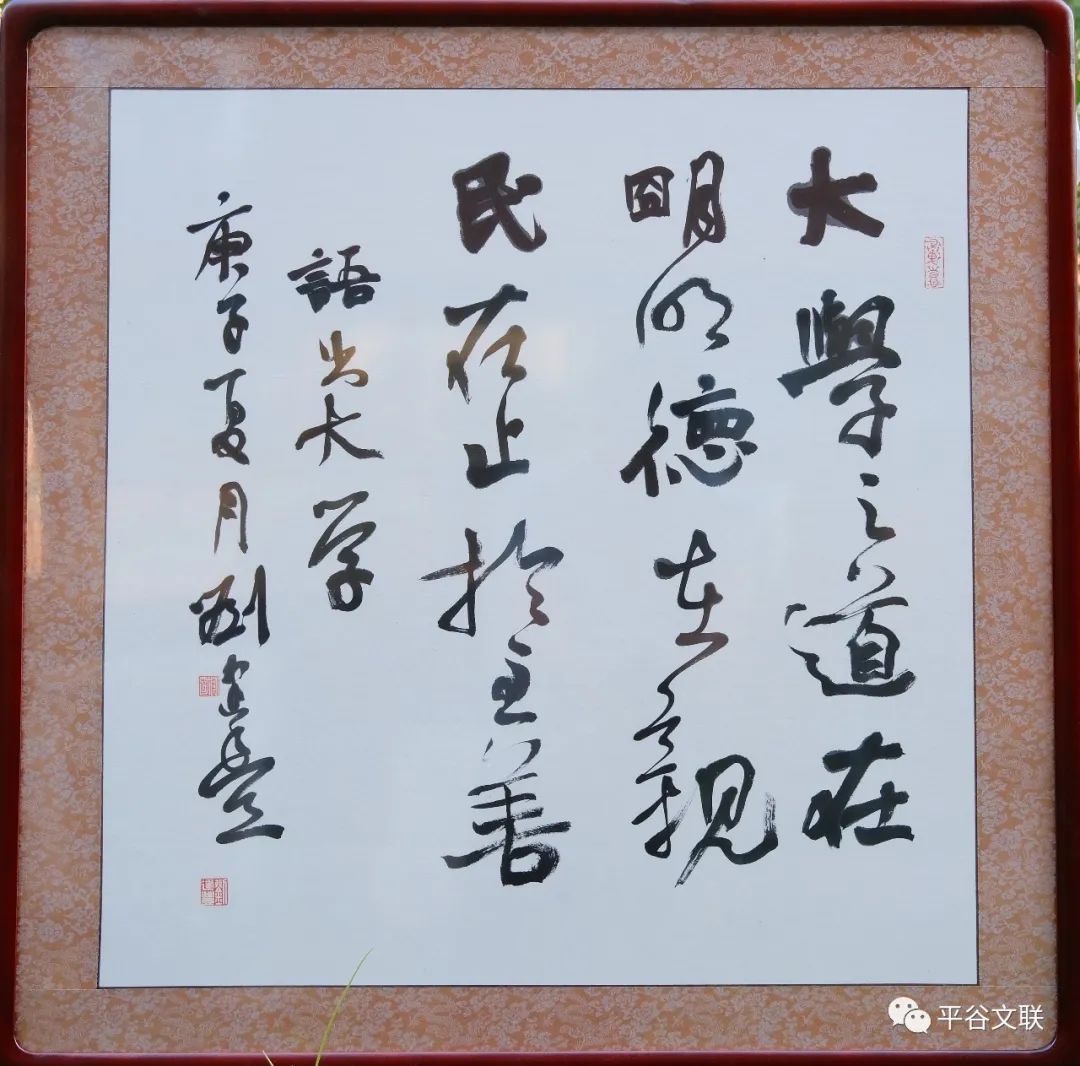 大學之道在
朙明德在親
民在止於至善
語出大学
庚子夏月劉建豐
平谷文联